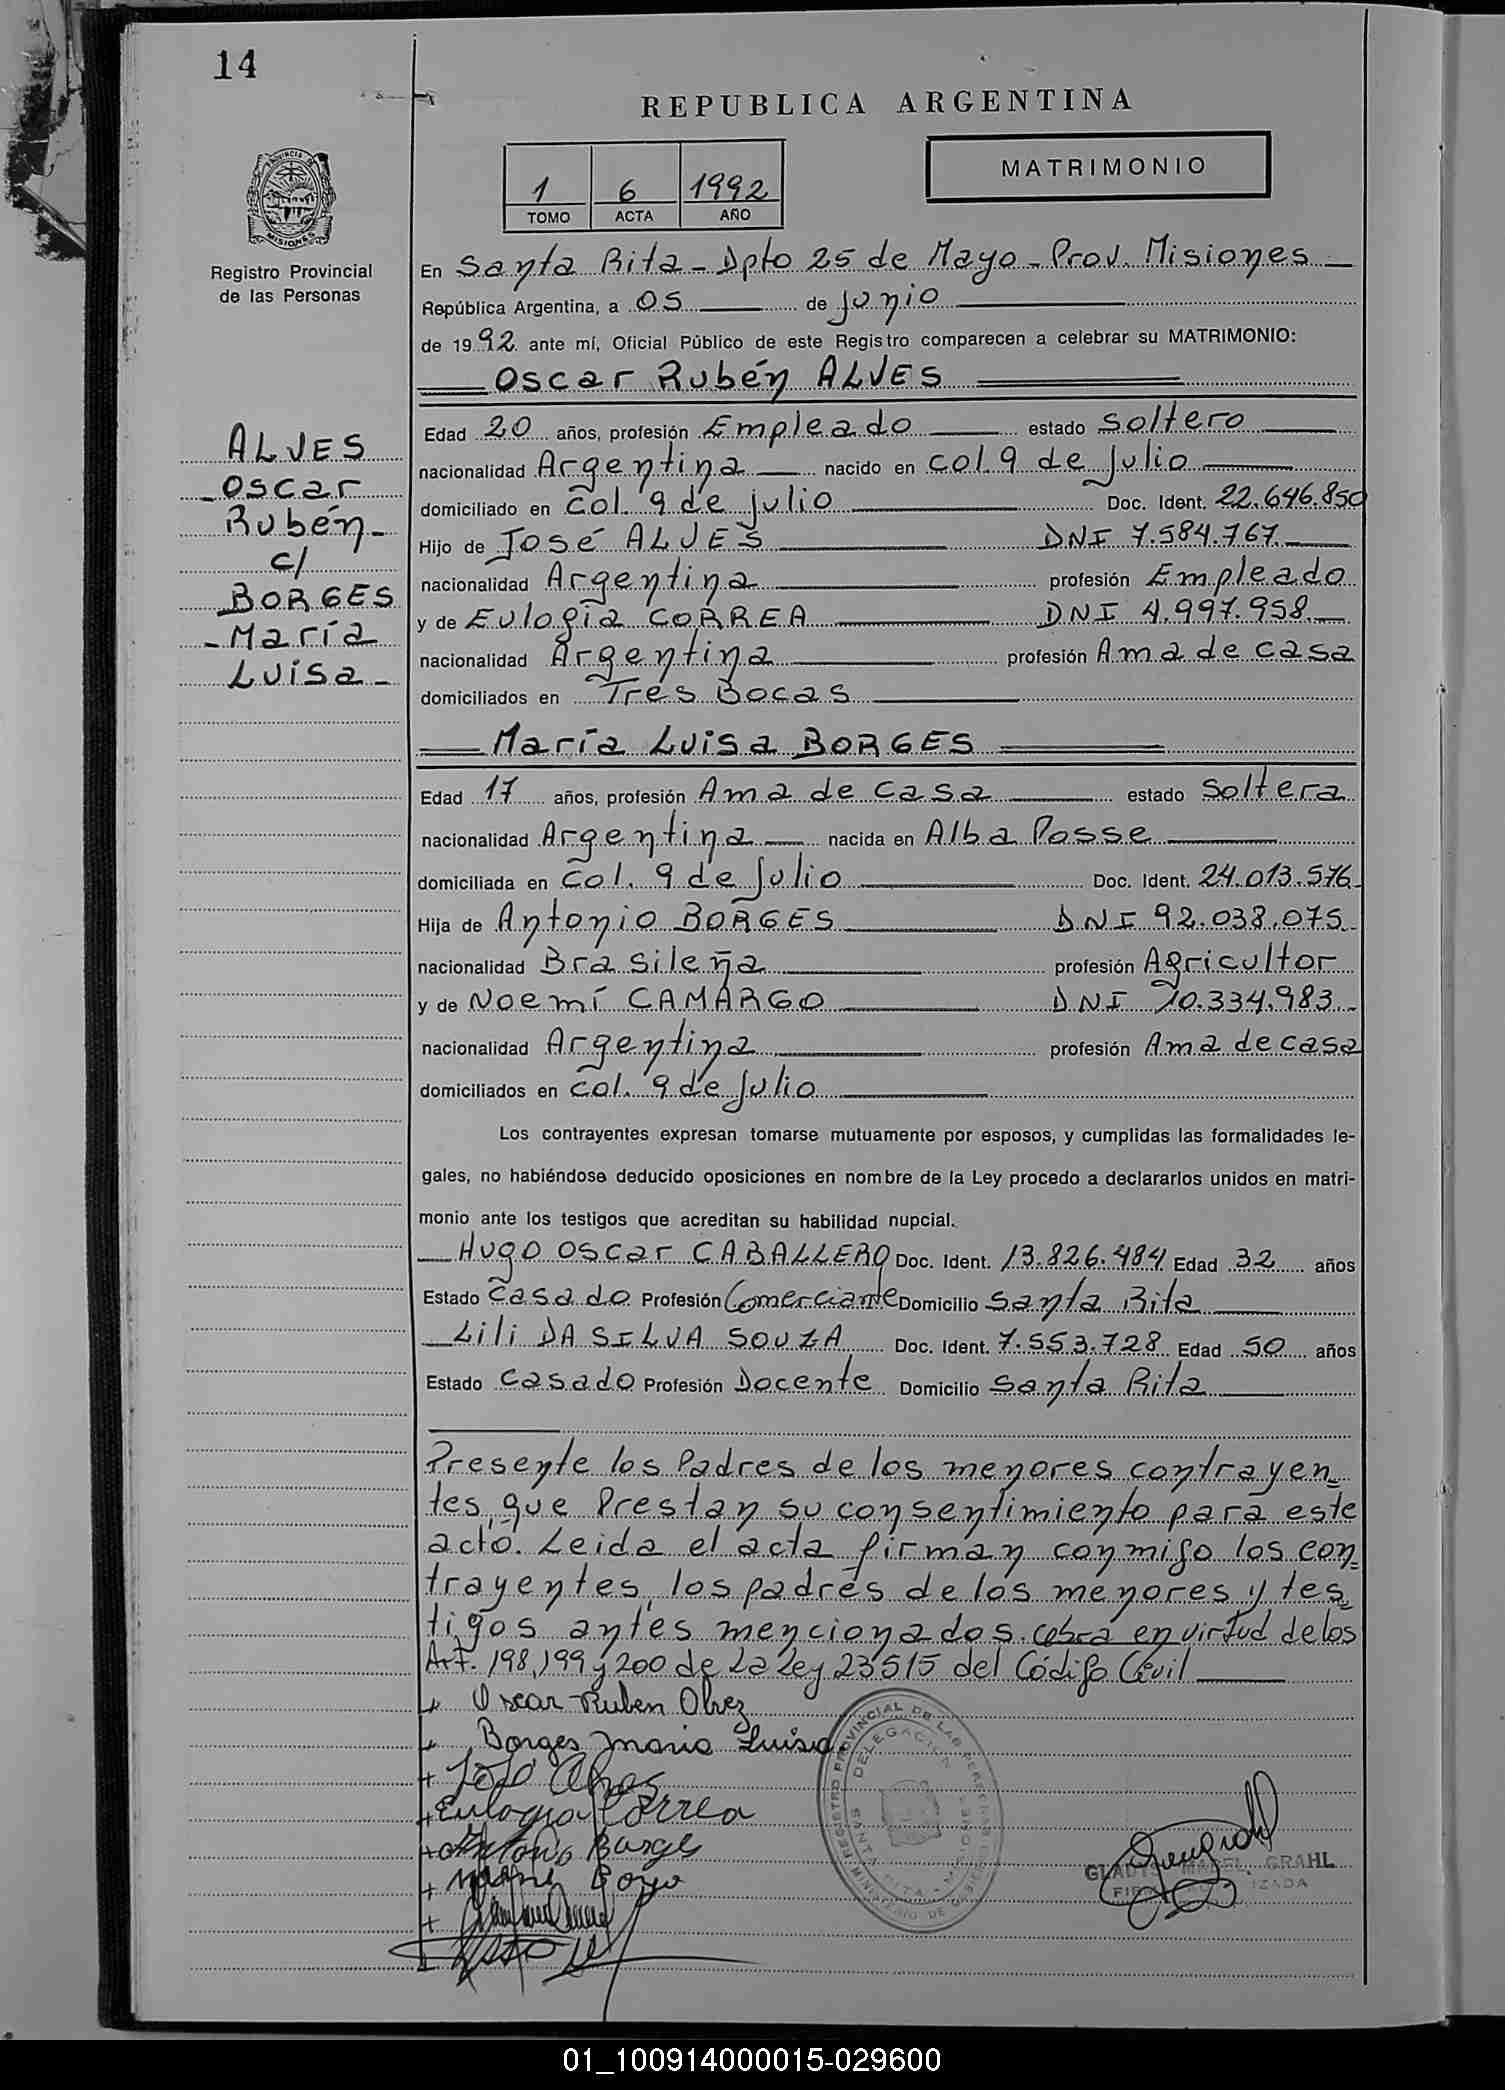 14
REPUBLICA ARGENTINA
MATRIMONIO
1 6 1992
TOMO ACTA AÑO
PROVINCIA DE MISIONES
Registro Provincial
de las Personas
En Santa Rita - Dpto 25 de Mayo - Prov. Misiones
República Argentina, a 05 de junio
de 1992 ante mí, Oficial Público de este Registro comparecen a celebrar su MATRIMONIO:
Oscar Rubén ALVES
ALVES
Oscar
Rubén
c/
BORGES
María
Luisa
Edad 20 años, profesión Empleado estado soltero
nacionalidad Argentina nacido en col. 9 de Julio
domiciliado en col. 9 de julio Doc. Ident. 22.646.850
Hijo de José ALVES DNI 7.584.767
nacionalidad Argentina profesión Empleado
y de Eulogia CORREA DNI 4.997.958
nacionalidad Argentina profesión Ama de casa
domiciliados en Tres Bocas
María Luisa BORGES
Edad 17 años, profesión Ama de casa estado soltera
nacionalidad Argentina nacida en Alba Posse
domiciliada en col. 9 de Julio Doc. Ident. 24.013.576
Hija de Antonio BORGES DNI 92.038.075
nacionalidad Brasileña profesión Agricultor
y de Noemí CAMARGO DNI 10.334.983
nacionalidad Argentina profesión Ama de casa
domiciliados en col. 9 de Julio
Los contrayentes expresan tomarse mutuamente por esposos, y cumplidas las formalidades le-
gales, no habiéndose deducido oposiciones en nombre de la Ley procedo a declararlos unidos en matri-
monio ante los testigos que acreditan su habilidad nupcial.
Hugo Oscar CABALLERO Doc. Ident. 13.826.484 Edad 32 años
Estado Casado Profesión Comerciante Domicilio Santa Rita
Lili DA SILVA SOUZA Doc. Ident. 7.553.728 Edad 50 años
Estado casado Profesión Docente Domicilio Santa Rita
Presente los Padres de los menores contrayen=
tes, que Prestan su consentimiento para este
acto. Leida el acta firman conmigo los con=
trayentes, los padres de los menores y tes=
tigos antes mencionados en virtud de los
Art. 198, 199 y 200 de La Ley 23515 del Código Civil
Oscar Ruben Alvez
Borges Maria Luisa
José Alves
Eulogia Correa
Antonio Borges
REGISTRO PROVINCIAL DE LAS PERSONAS
DELEGACION
SANTA RITA - MISIONES
MINISTERIO DE GOBIERNO
GLADYS MABEL GRAHL
01_100914000015-029600